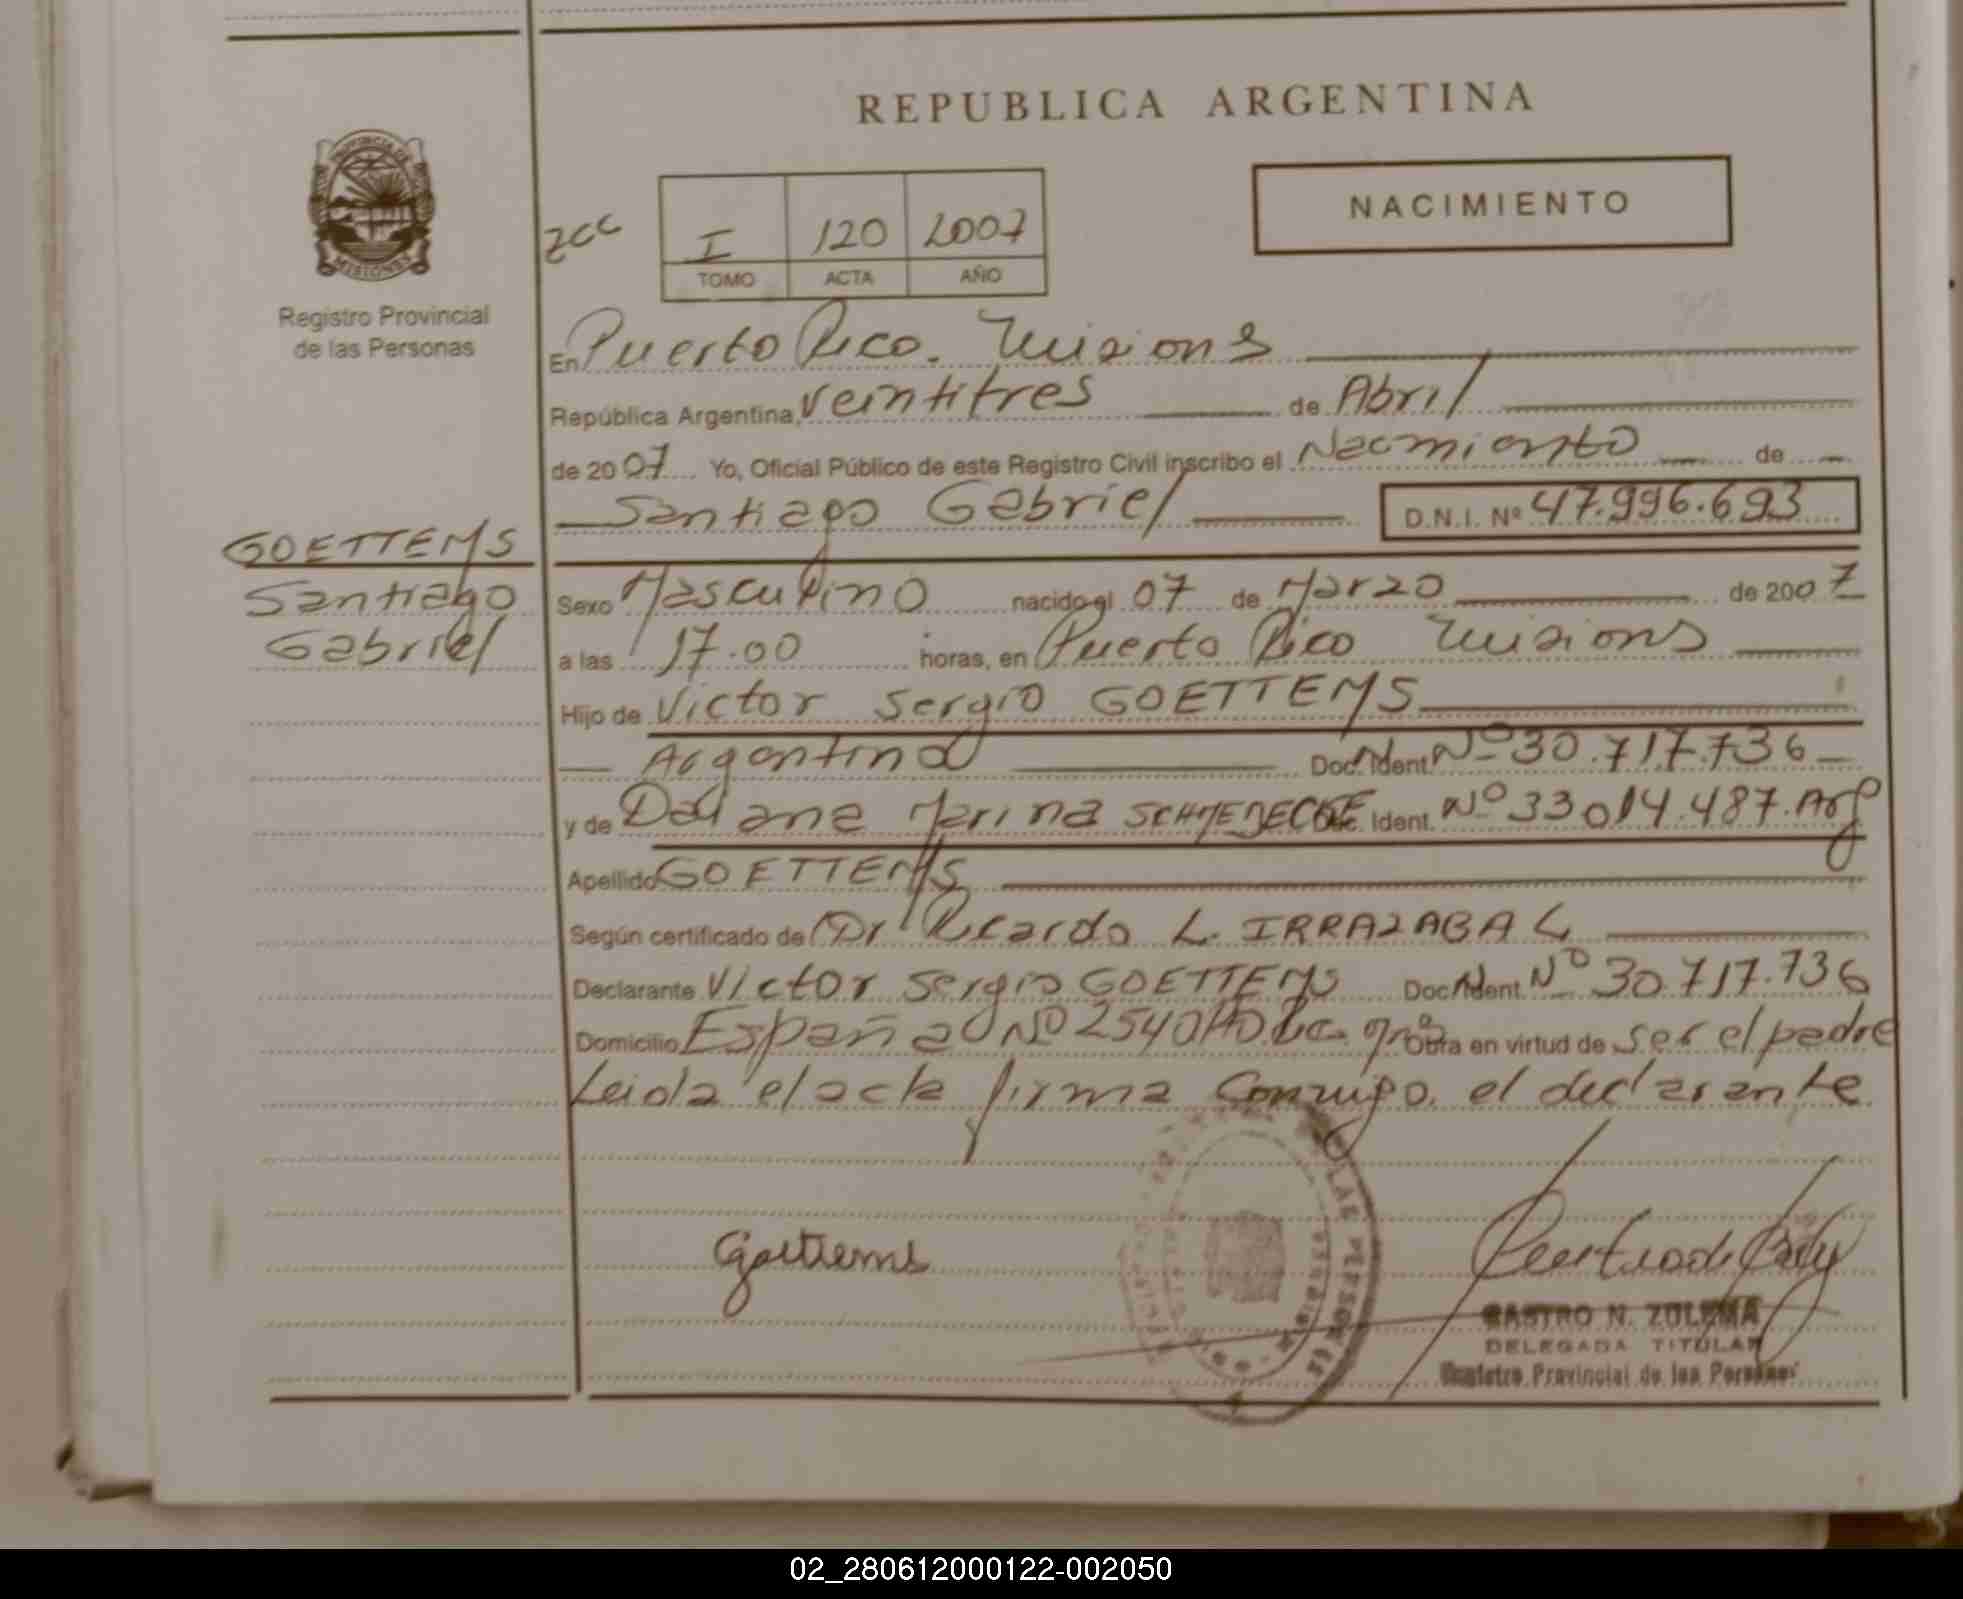 REPUBLICA ARGENTINA
NACIMIENTO
PROVINCIA DE
MISIONES
Registro Provincial
de las Personas
I 120 2007
TOMO ACTA AÑO
En Puerto Rico. Misiones
República Argentina, veintitres de Abril
de 2007 Yo, Oficial Público de este Registro Civil inscribo el Nacimiento de
Santiago Gabriel D.N.I. Nº 47.996.693
GOETTEMS
Santiago
Gabriel
Sexo Masculino nacido el 07 de Marzo de 2007
a las 17.00 horas, en Puerto Rico Misiones
Hijo de Victor Sergio GOETTEMS
Argentino Doc. Ident. Nº 30.717.736
y de Daiana Marina Doc. Ident. Nº 33014.487. Arg
Apellido GOETTEMS
Según certificado de Dr Ricardo L. IRRAZABAL
Declarante Victor Sergio GOETTEMS Doc. Ident. Nº 30.717.736
Domicilio España Nº 2540 Obra en virtud de ser el padre
Leida el acta firma conmigo el declarante
Goettems
CASTRO N. ZULEMA
DELEGADA TITULAR
Registro Provincial de las Personas
02_280612000122-002050